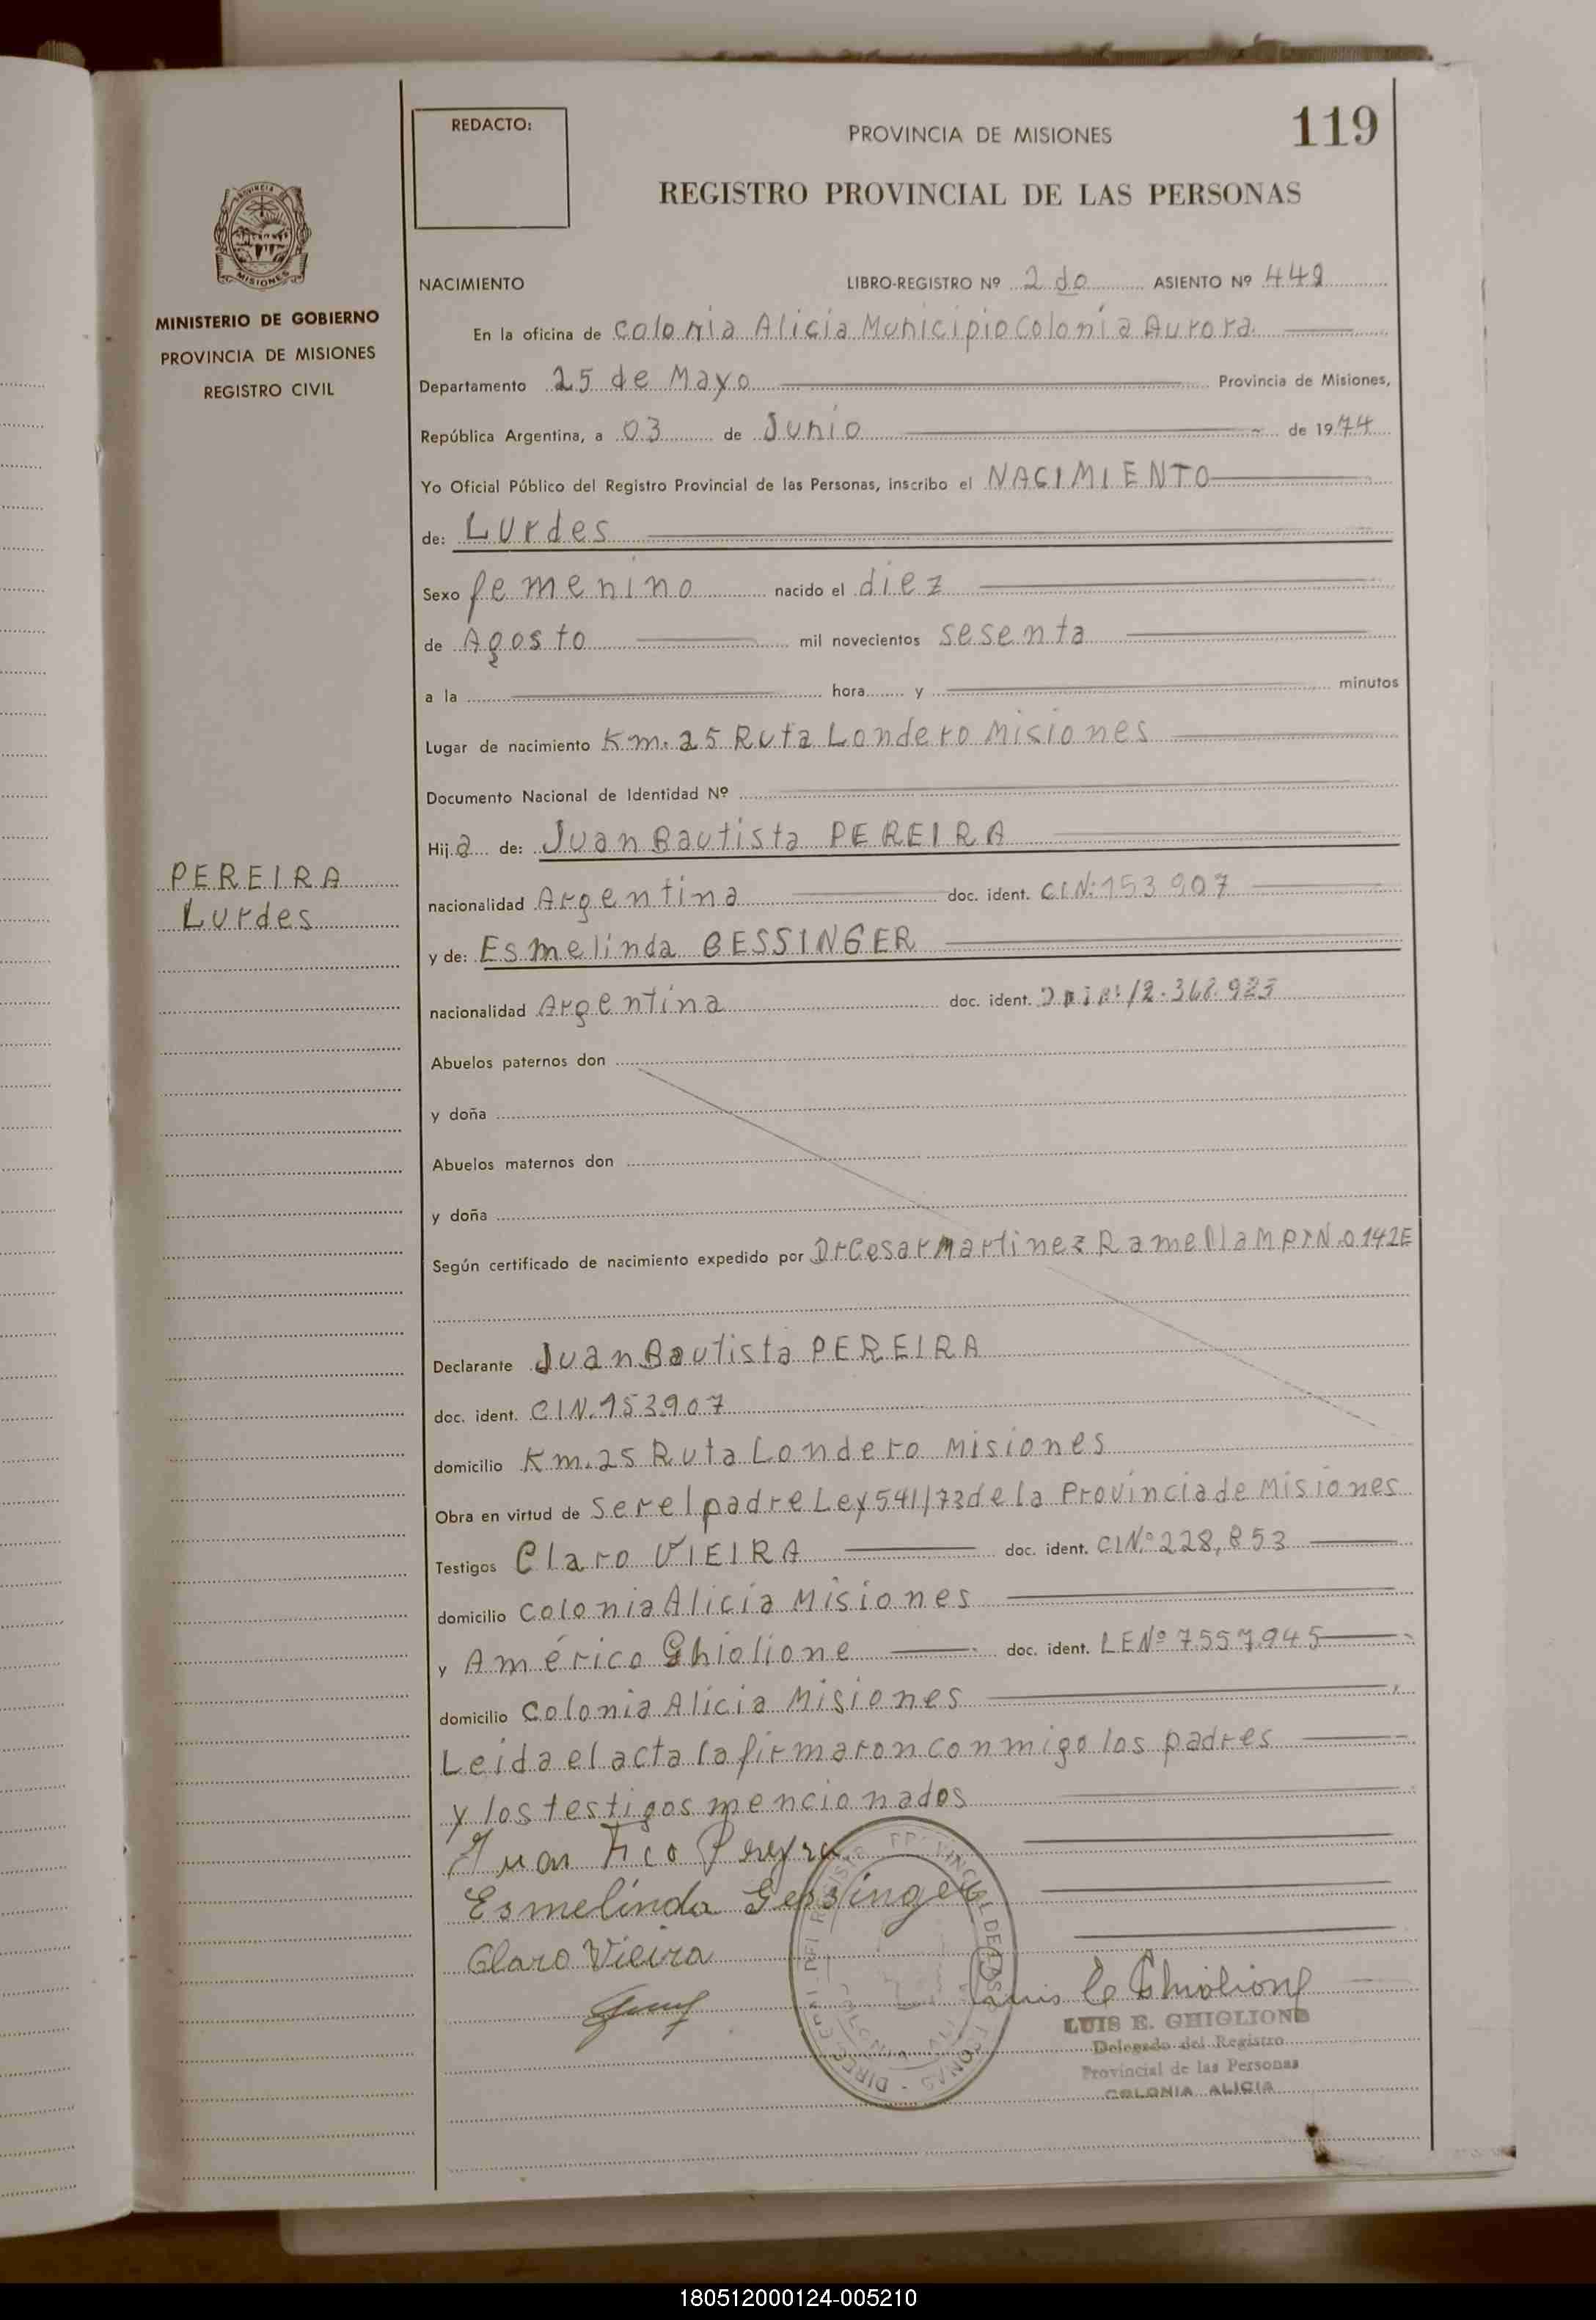 119
REDACTO:
PROVINCIA DE MISIONES
REGISTRO PROVINCIAL DE LAS PERSONAS
MINISTERIO DE GOBIERNO
PROVINCIA DE MISIONES
REGISTRO CIVIL
NACIMIENTO LIBRO-REGISTRO Nº 2do ASIENTO Nº 449
En la oficina de Colonia Alicia Municipio Colonia Aurora
Departamento 25 de Mayo Provincia de Misiones,
República Argentina, a 03 de Junio de 1974
Yo Oficial Público del Registro Provincial de las Personas, inscribo el NACIMIENTO
de: Lurdes
Sexo femenino nacido el diez
de Agosto mil novecientos sesenta
a la hora y minutos
Lugar de nacimiento Km. 25 Ruta Londero Misiones
Documento Nacional de Identidad Nº
Hija de: Juan Bautista PEREIRA
PEREIRA
Lurdes
nacionalidad Argentina doc. ident. CIN: 153907
y de: Esmelinda GESSINGER
nacionalidad Argentina doc. ident.
Abuelos paternos don
y doña
Abuelos maternos don
y doña
Según certificado de nacimiento expedido por Dr Cesar Martinez Ramella MPrN. 0142E
Declarante Juan Bautista PEREIRA
doc. ident. CIN. 153907
domicilio Km. 25 Ruta Londero Misiones
Obra en virtud de ser el padre Ley 541/73 de la Provincia de Misiones
Testigos Claro VIEIRA doc. ident. CIN.º 228,853
domicilio Colonia Alicia Misiones
y Américo Ghiolione doc. ident. LENº 7557945
domicilio Colonia Alicia Misiones
Leida el acta la firmaron conmigo los padres
y los testigos mencionados
Juan Pereyra
Esmelinda Gessinger
Claro Vieira
Luis E Ghiolione
LUIS E. GHIGLIONE
Delegado del Registro
Provincial de las Personas
COLONIA ALICIA
180512000124-005210